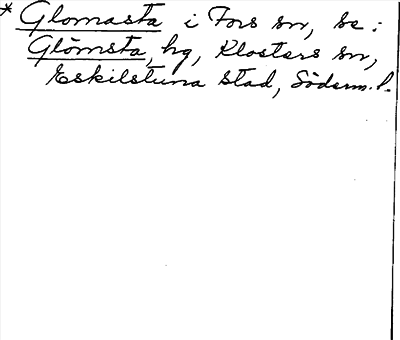 * Glomasta i Fors sn, se:
Glömsta, hg, Klosters sn,
Eskilstuna stad, Söderm. l.